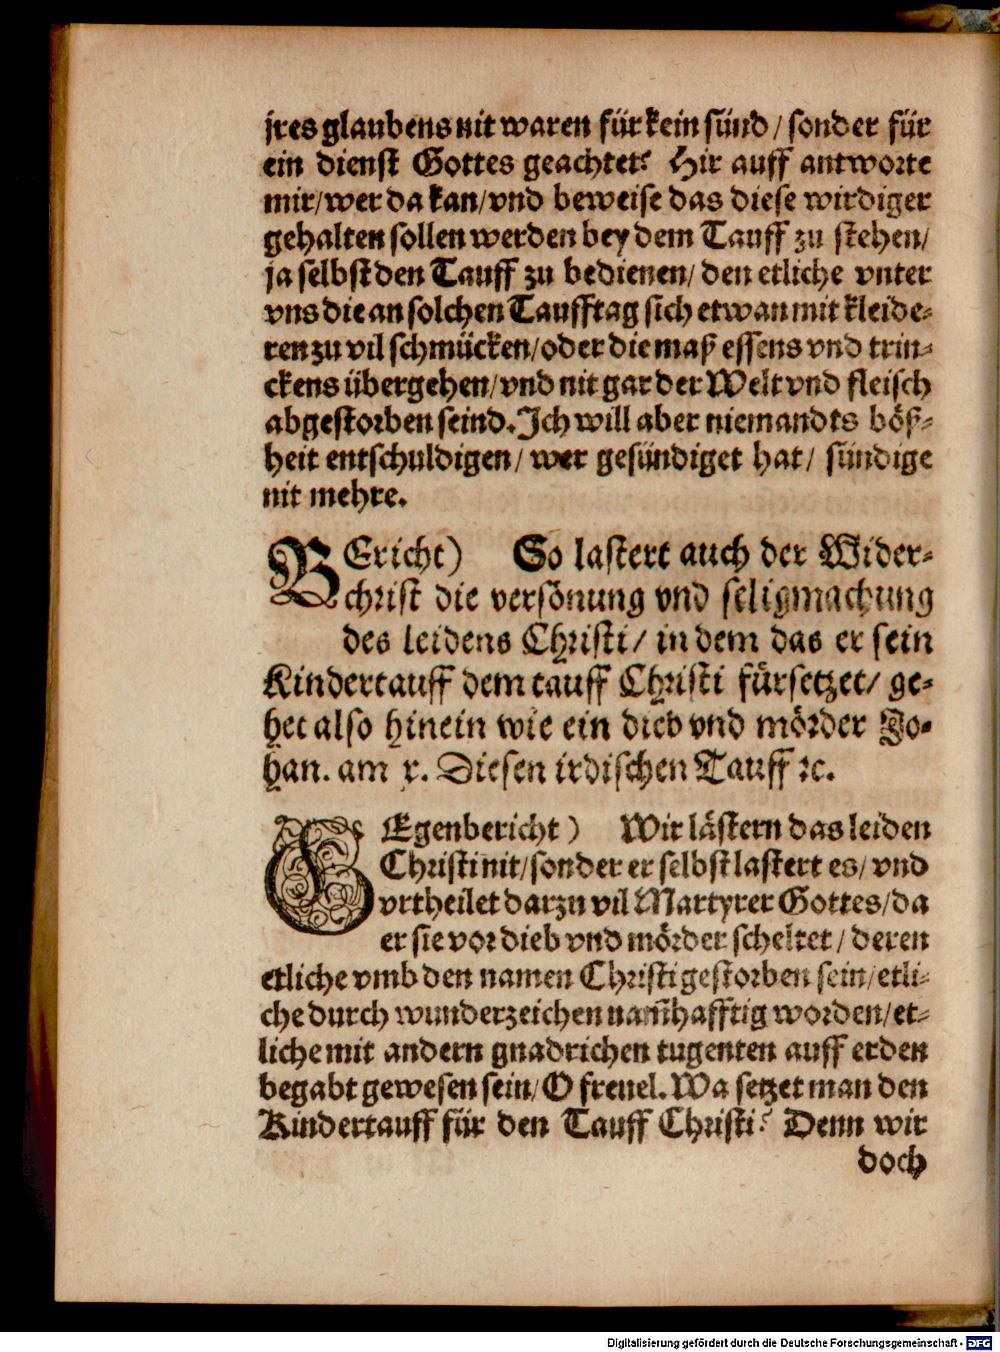 jres glaubens nit waren für kein sünd / sonder für
ein dienst Gottes geachtet? Hir auff antworte
mir/wer da kan/vnd beweise das diese wirdiger
gehalten sollen werden bey dem Tauff zu stehen/
ja selbst den Tauff zu bedienen/ den etliche vnter
vns die an solchen Taufftag sich etwan mit kleide⸗
ren zu vil schmücken/oder die maß essens vnd trin⸗
ckens übergehen/vnd nit gar der Welt vnd fleisch
abgestorben seind. Ich will aber niemandts böß⸗
heit entschuldigen/ wer gesündiget hat/ sündige
nit mehre.
BEricht) So lastert auch der Wider⸗
christ die versönung vnd seligmachung
des leidens Christi/ in dem das er sein
Kindertauff dem tauff Christi fürsetzet/ ge⸗
het also hinein wie ein dieb vnd mörder Jo⸗
han. am x. Diesen irdischen Tauff ꝛc.
GEgenbericht) Wir lästern das leiden
Christi nit/sonder er selbst lastert es/ vnd
vrtheilet darzu vil Martyrer Gottes/da
er sie vor dieb vnd mörder scheltet / deren
etliche vmb den namen Christi gestorben sein/etli⸗
che durch wunderzeichen nam̃hafftig worden/et⸗
liche mit andern gnadrichen tugenten auff erden
begabt gewesen sein/ O freuel. Wa setzet man den
Kindertauff für den Tauff Christi? Denn wir
doch
Digitalisierung gefördert durch die Deutsche Forschungsgemeinschaft - DFG